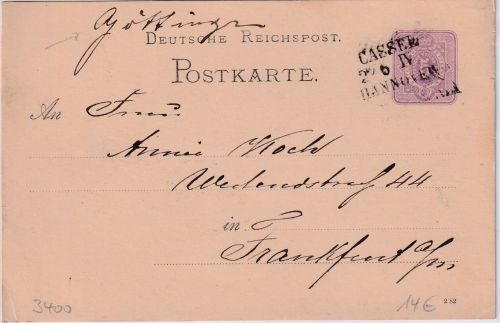 Göttingen
DEUTSCHE REICHSPOST.
POSTKARTE.
CASSEL
6 IV
HANNOVER
An Frau
Annie Koch
44
in
Frankfurt a/m
3400
14€
2 82